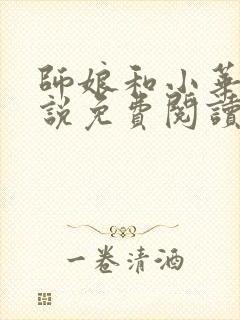 師娘和小華
說免費閱讀
一卷清酒